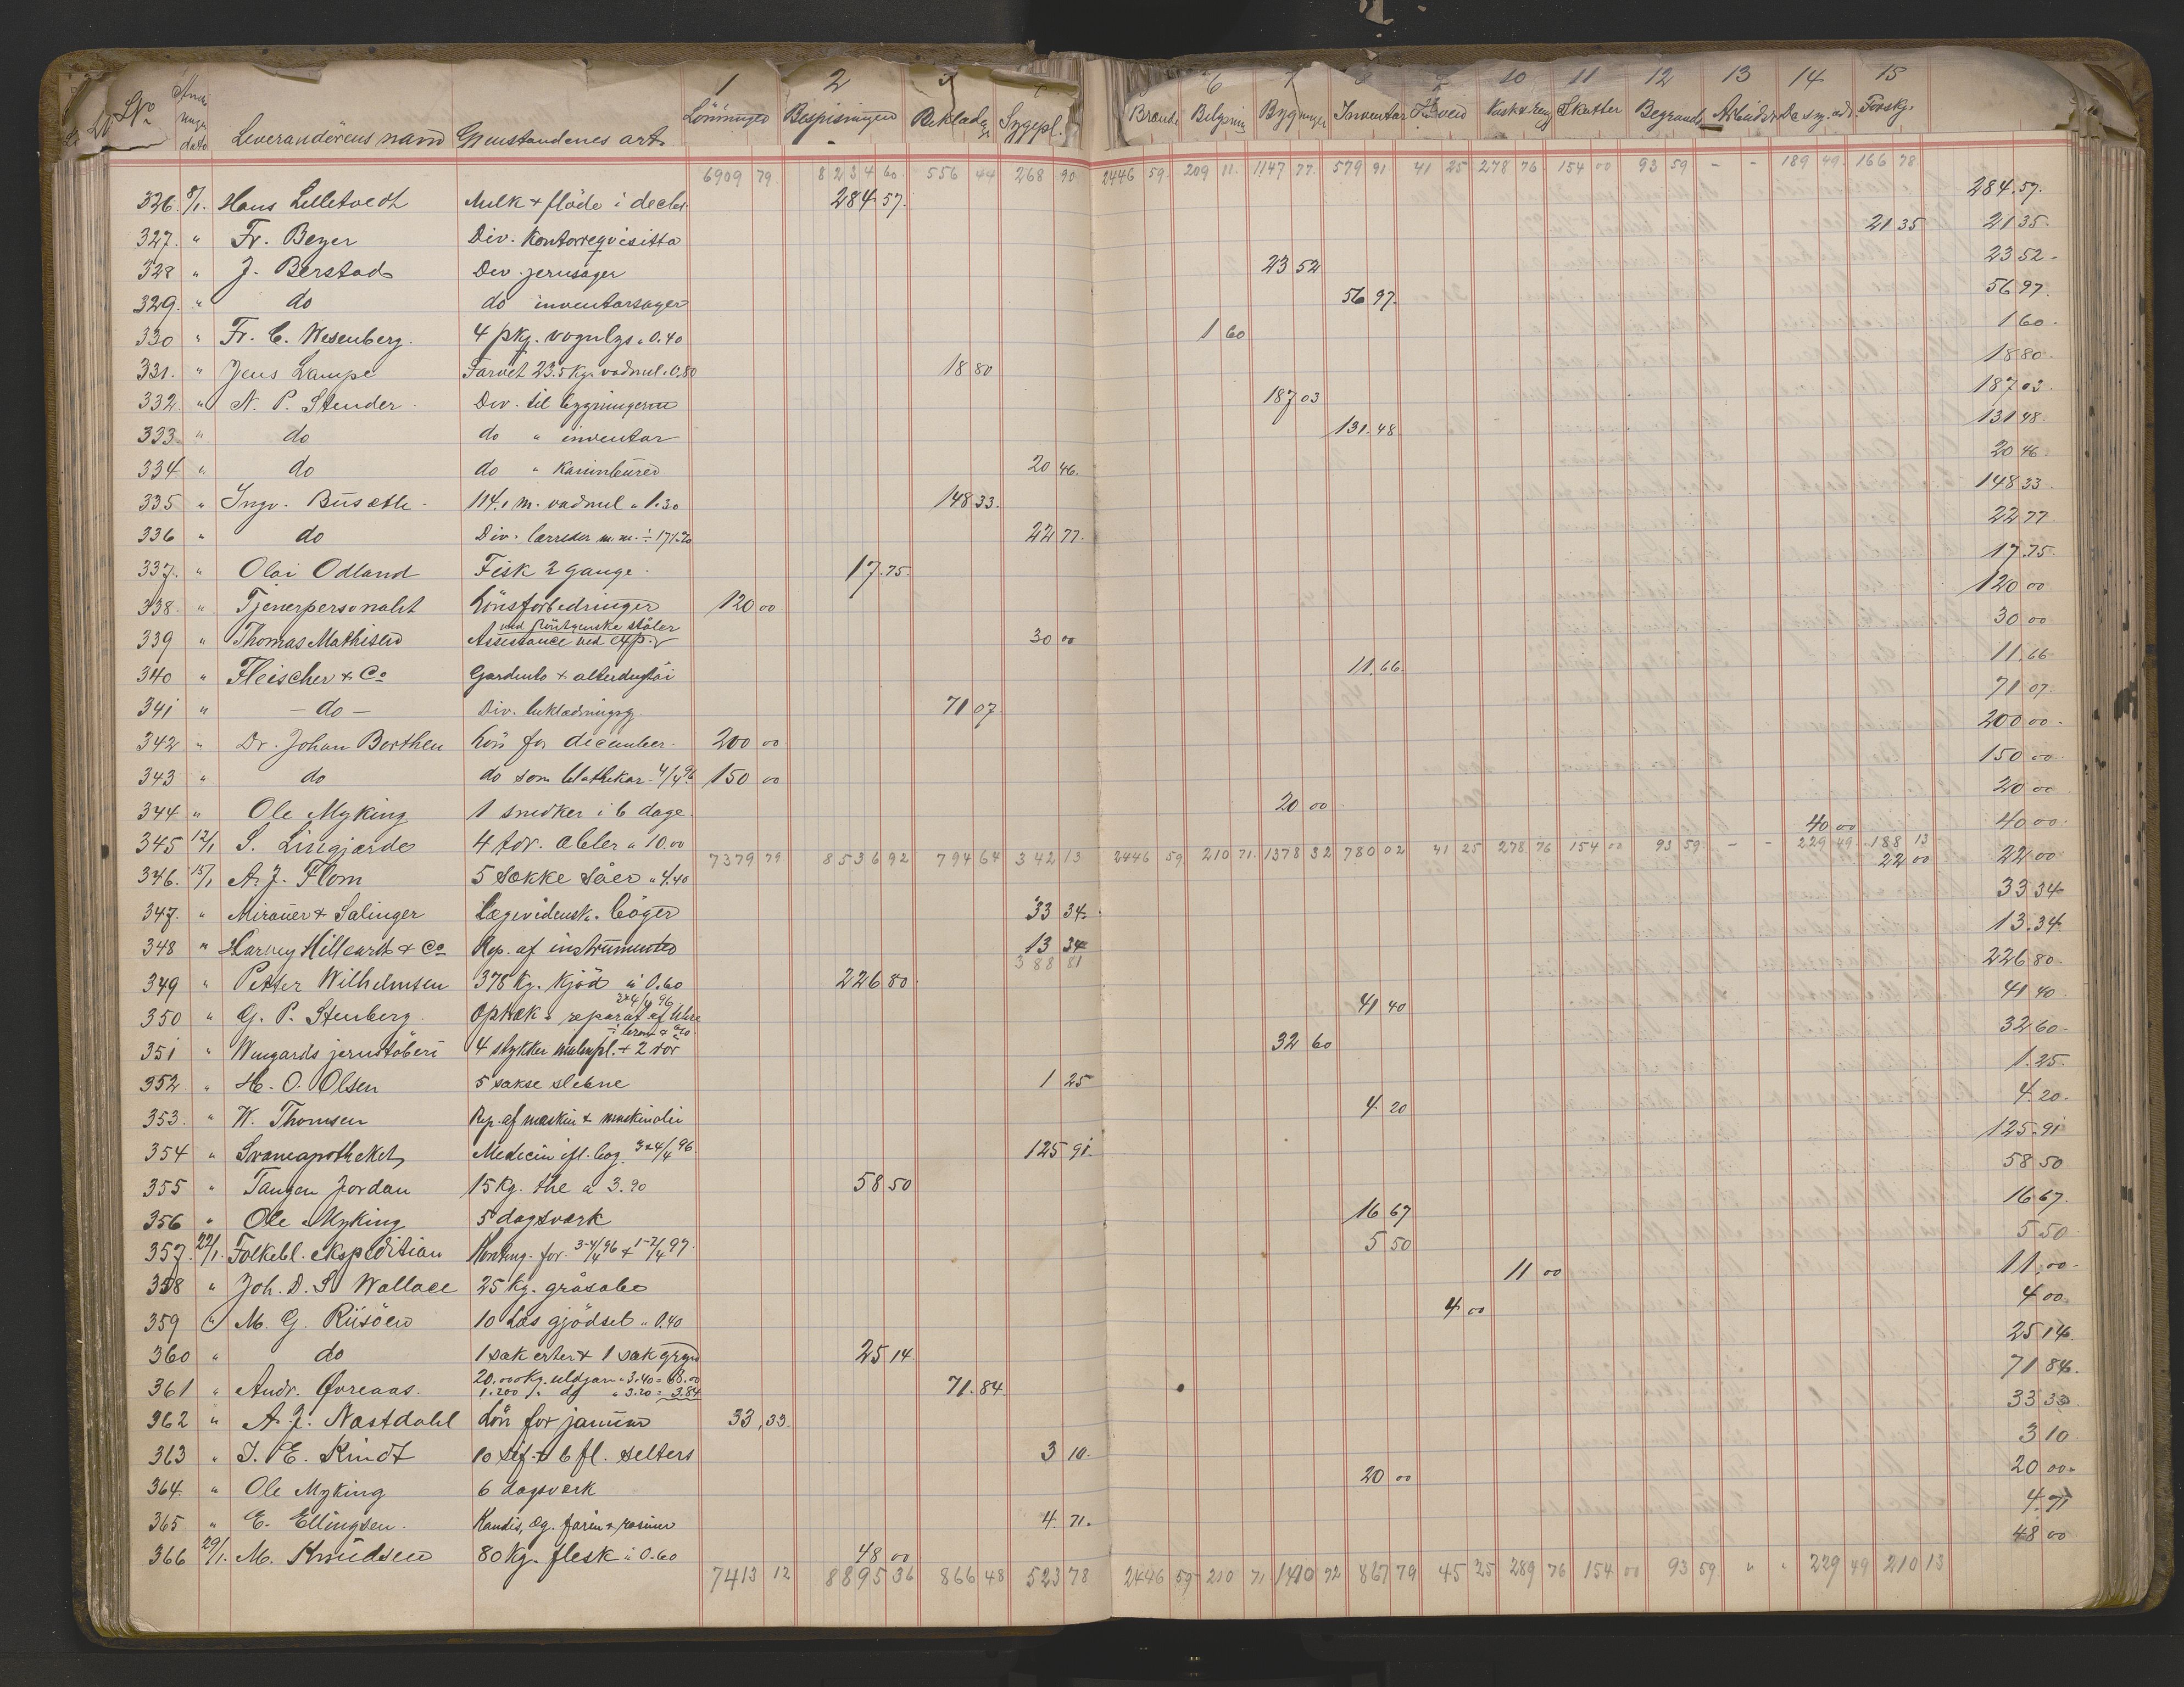 1 2 6 7 8 10 11 12 13 14 15
No Leverandörens navn Gjenstandenes art Lönninger Bespisningen Beklædn. Sygepl. Brænde Belysning Bygninger Inventar Skatter Begravels Forskj.
6909 79 8234 60 556 44 268 90 2446 59 209 11 1147 77 579 91 41 25 278 76 154 00 93 59 - - 189 49 166 78
326 8/1 Hans Lilletvedt Melk & flöde i decbr. 284.57 284.57
327 " Fr. Beyer Div. Kontorreqvisitta 21 35 21 35
328 " J. Berstad Div. jernsager 23 52 23 52
329 " do do inventarsager 56 97 56 97
330 " Fr. C. Wesenberg 4 pkg. vognlys à 0.40 1 60 1 60
331 " Jens Lampe Farvet 23.5 Kg. vadmel à 0.80 18 80 18 80
332 " N. P. Stender Div. til bygningerne 187 03 187 03
333 " do do " inventar 131.48 131 48
334 " do do " 20 46 20 46
335 " Ingv. Buseth 114.1 m. vadmel à 1.30 148 33 148 33
336 " do Div. lærreder m.m. ÷ 171.20 22 77 22 77
337 " Olai Odland Fisk 2 gange 17.75 17.75
338 " Tjenerpersonalet Lönsforbedringer 120 00 120 00
339 " Thomas Mathisen Assistance ved exp. ved Röntgenske stråler 30 00 30 00
340 " Fleischer & Co Gardintö & alterdugtöi 11.66 11.66
341 " - do - Div. beklædningsg. 71 07 71 07
342 " Dr. Johan Borthen Lön for december 200 00 200 00
343 " do do som 4/4 96 150 00 150 00
344 " Ole Myking 1 snedker i 6 dage 20 00 20 00
345 12/1 S. Lingjærde 4 tdr. æbler à 10.00 40 00 40 00
7379 79 8536 92 794 64 342 13 2446 59 210 71 1378 32 780 02 41 25 278 76 154 00 93 59 - - 229 49 188 13
346 15/1 A. J. Flom 5 sække såer à 4.40 22 00 22 00
347 " Mirauer & Salinger Lægevidensk. böger 33 34 33 34
348 " Harvey Hilliard & Co Rep. af instrumenter 13 34 13.34
388 81
349 " Petter Wilhelmsen 378 Kg. kjöd à 0.60 226 80 226 80
350 " G. P. Stenberg Optræk & reparat. af Uhre 3&4/4 96 41 40 41 40
351 " Wingaards jernstöberi 4 stykker malmpl. & 2 rör 32 60 32 60
352 " H. O. Olsen 5 sakse slebne 1 25 1.25
353 " W. Thomsen Rep. af maskin & maskinolie 4 20 4.20
354 " Svaneapotheket Medicin ifl. bog. 3&4/4 96 125 91 125.91
355 " Tangen Jordan 15 Kg. the à 3.90 58 50 58 50
356 " Ole Myking 5 dagsværk 16 67 16 67
357 22/1 Folkebl. ekspedition Konting. for 3-4/4 96 & 1-2/4 97 5 50 5 50
358 " Joh. D. S. Wallace 25 kg. gråsæbe 11 00 11.00
359 " M. G. Riisöen 10 læs gjödsel à 0.40 4 00 4 00
360 " do 1 sæk erter & 1 sæk gryn 25 14 25 14
361 " Andr. Övreaas 20.000 Kg. uldgarn à 3.40 = 68.00
1.200 " do " 3.20 = 3.84 71.84 71 84
362 " A. J. Nastdahl Lön for januar 33,33 33 33
363 " J. E. Kindt 10 sif. & 6 fl. selters 3 10 3 10
364 " Ole Myking 6 dagsværk 20 00 20 00
365 " E. Ellingsen Kandis, og farin & rosiner 4.71 4 71
366 29/1 M. Knudsen 80 Kg. flesk à 0.60 48 00 48 00
7413 12 8895 36 866 48 523 78 2446 59 210 71 1410 92 867 79 45 25 289 76 154 00 93 59 " " 229 49 210 13